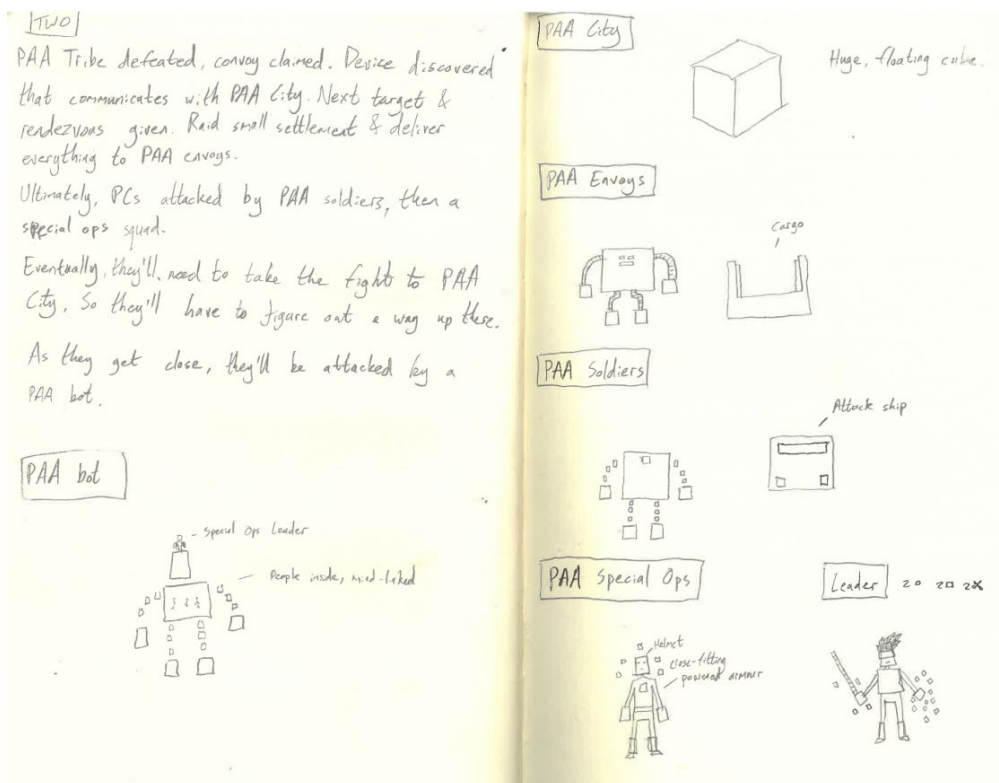 TWO
PAA Tribe defeated, convoy claimed. Device discovered
that communicates with PAA City. Next target &
rendezvous given. Raid small settlement & deliver
everything to PAA envoys.
Ultimately, PCs attacked by PAA soldiers, then a
special ops squad.
Eventually, they'll need to take the fight to PAA
City. So they'll have to figure out a way up there.
As they get close, they'll be attacked by a
PAA bot.
PAA bot
Special Ops Leader
People inside, mind-linked
PAA City
Huge, floating cube.
PAA Envoys
Cargo
PAA Soldiers
Attack ship
PAA Special Ops
Helmet
close-fitting
powered armour
Leader